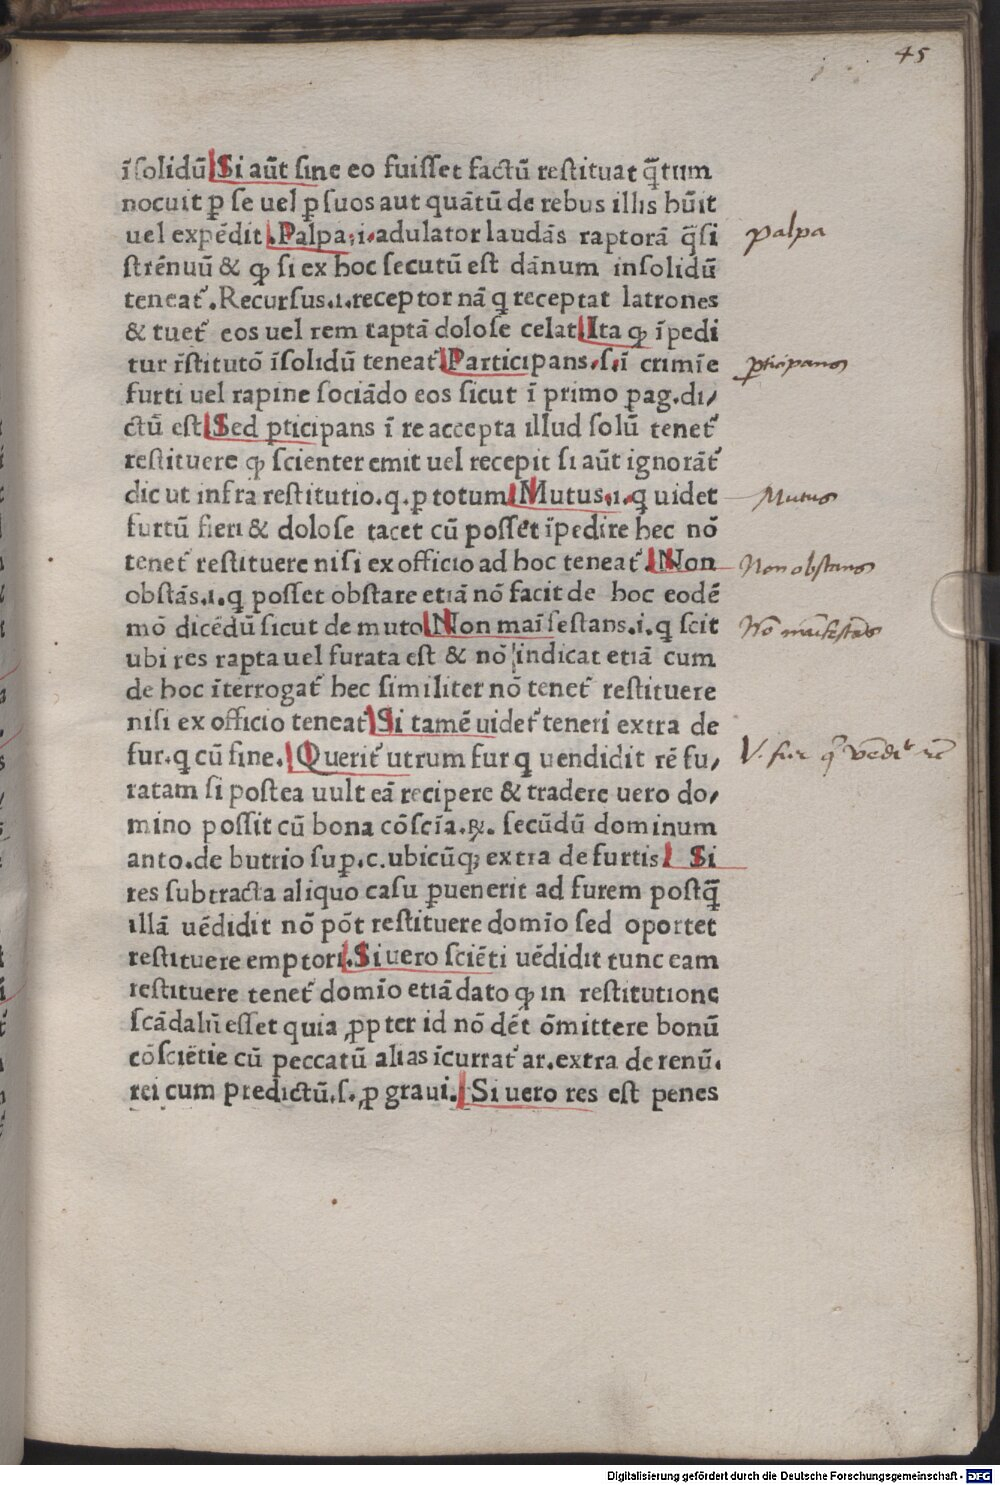 45
īſolidū Si aūt ſine eo fuiſſet factū reſtituat q̄tum
nocuit ꝑ ſe uel ꝑ ſuos aut quātū de rebus illis hūit
uel expēdit. Palpa.i. adulator laudās raptorā q̄ſi
ſtrēnuū & ꝙ ſi ex hoc ſecutū eſt dānum inſolidū
teneat᷑. Recurſus.ı. receptor nā q receptat latrones
& tuet᷑ eos uel rem taptā doloſe celat. Ita ꝙ īpedi
tur r̄ſtitutō īſolidū teneat᷑ Participans.ſ.ī crimīe
furti uel rapine ſociādo eos ſicut ī primo pag. di,
ctū eſt Sed ꝑticipans ī re accepta illud ſolū tenet᷑
reſtituere ꝙ ſcienter emit uel recepit ſi aūt ignorāt᷑
dic ut infra reſtitutio.q. ꝑ totum. Mutus.ı.q uidet
furtū fieri & doloſe tacet cū poſſet īpedire hec nō
tenet᷑ reſtituere niſi ex officio ad hoc teneat᷑. Non
obſtās.ı.q poſſet obſtare etiā nō facit de hoc eodē
mō dicēdū ſicut de muto. Non maīfeſtans.i.q ſcit
ubi res rapta uel furata eſt & nō indicat etiā cum
de hoc īterrogat᷑ hec ſimiliter nō tenet᷑ reſtituere
niſi ex officio teneat᷑ Si tamē uidet᷑ teneri extra de
fur.q cū ſine. Querit᷑ utrum fur q uendidit rē fu,
ratam ſi poſtea uult eā recipere & tradere uero do,
mino poſſit cū bona cōſcīa.℞. ſecūdū dominum
anto.de butrio ſuꝑ.c.ubicūqꝫ extra de furtis. Si
res ſubtracta aliquo caſu ꝑuenerit ad furem poſtq̄
illā uēdidit nō pōt reſtituere domīo ſed oportet
reſtituere emptori. Si uero ſciēti uēdidit tunc eam
reſtituere tenet᷑ domīo etiā dato ꝙ in reſtitutione
ſcādalū eſſet quia ꝓpter id nō dēt ōmittere bonū
cōſciētie cū peccatū alias īcurrat᷑ ar.extra de renū.
rei cum predictū.ſ. ꝓ graui. Si uero res eſt penes
palpa
ꝑticipans
Mutus
Non obstans
Nō manifestās
V. fur q vēdit rē
Digitalisierung gefördert durch die Deutsche Forschungsgemeinschaft - DFG